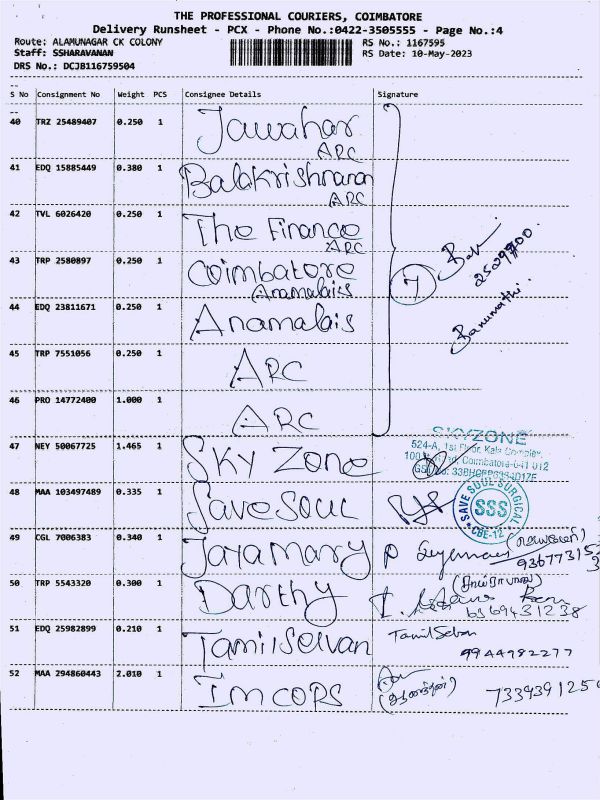 THE PROFESSIONAL COURIERS, COIMBATORE
Delivery Runsheet - PCX - Phone No.:0422-3505555 - Page No.:4
Route: ALAMUNAGAR CK COLONY
RS No.: 1167595
Staff: SSHARAVANAN
RS Date: 10-May-2023
DRS No.: DCJB116759504
S No Consignment No Weight PCS Consignee Details Signature
40 TRZ 25489407 0.250 1 Jawahar
ARC
41 EDQ 15885449 0.380 1 Balakrishnanan
ARC
42 TVL 6026420 0.250 1 The Finance
ARC
43 TRP 2580897 0.250 1 Coimbatore
Anamalaiss
7
Banumathi.
44 EDQ 23811671 0.250 1 Anamalais
45 TRP 7551056 0.250 1 ARC
46 PRO 14772400 1.000 1 ARC
47 NEY 50067725 1.465 1 Sky Zone
SKYZONE
524-A, 1st Floor, Kala Complex,
Coimbatore-641 012
48 MAA 103497489 0.335 1 Save Soul
SAVE SOUL SURGICAL
SSS
CBE-12
49 CGL 7006383 0.340 1 Jayamary
50 TRP 5543320 0.300 1 Darthy
6369431238
51 EDQ 25982899 0.210 1 Tamilselvan
9944982277
52 MAA 294860443 2.010 1 Imcops